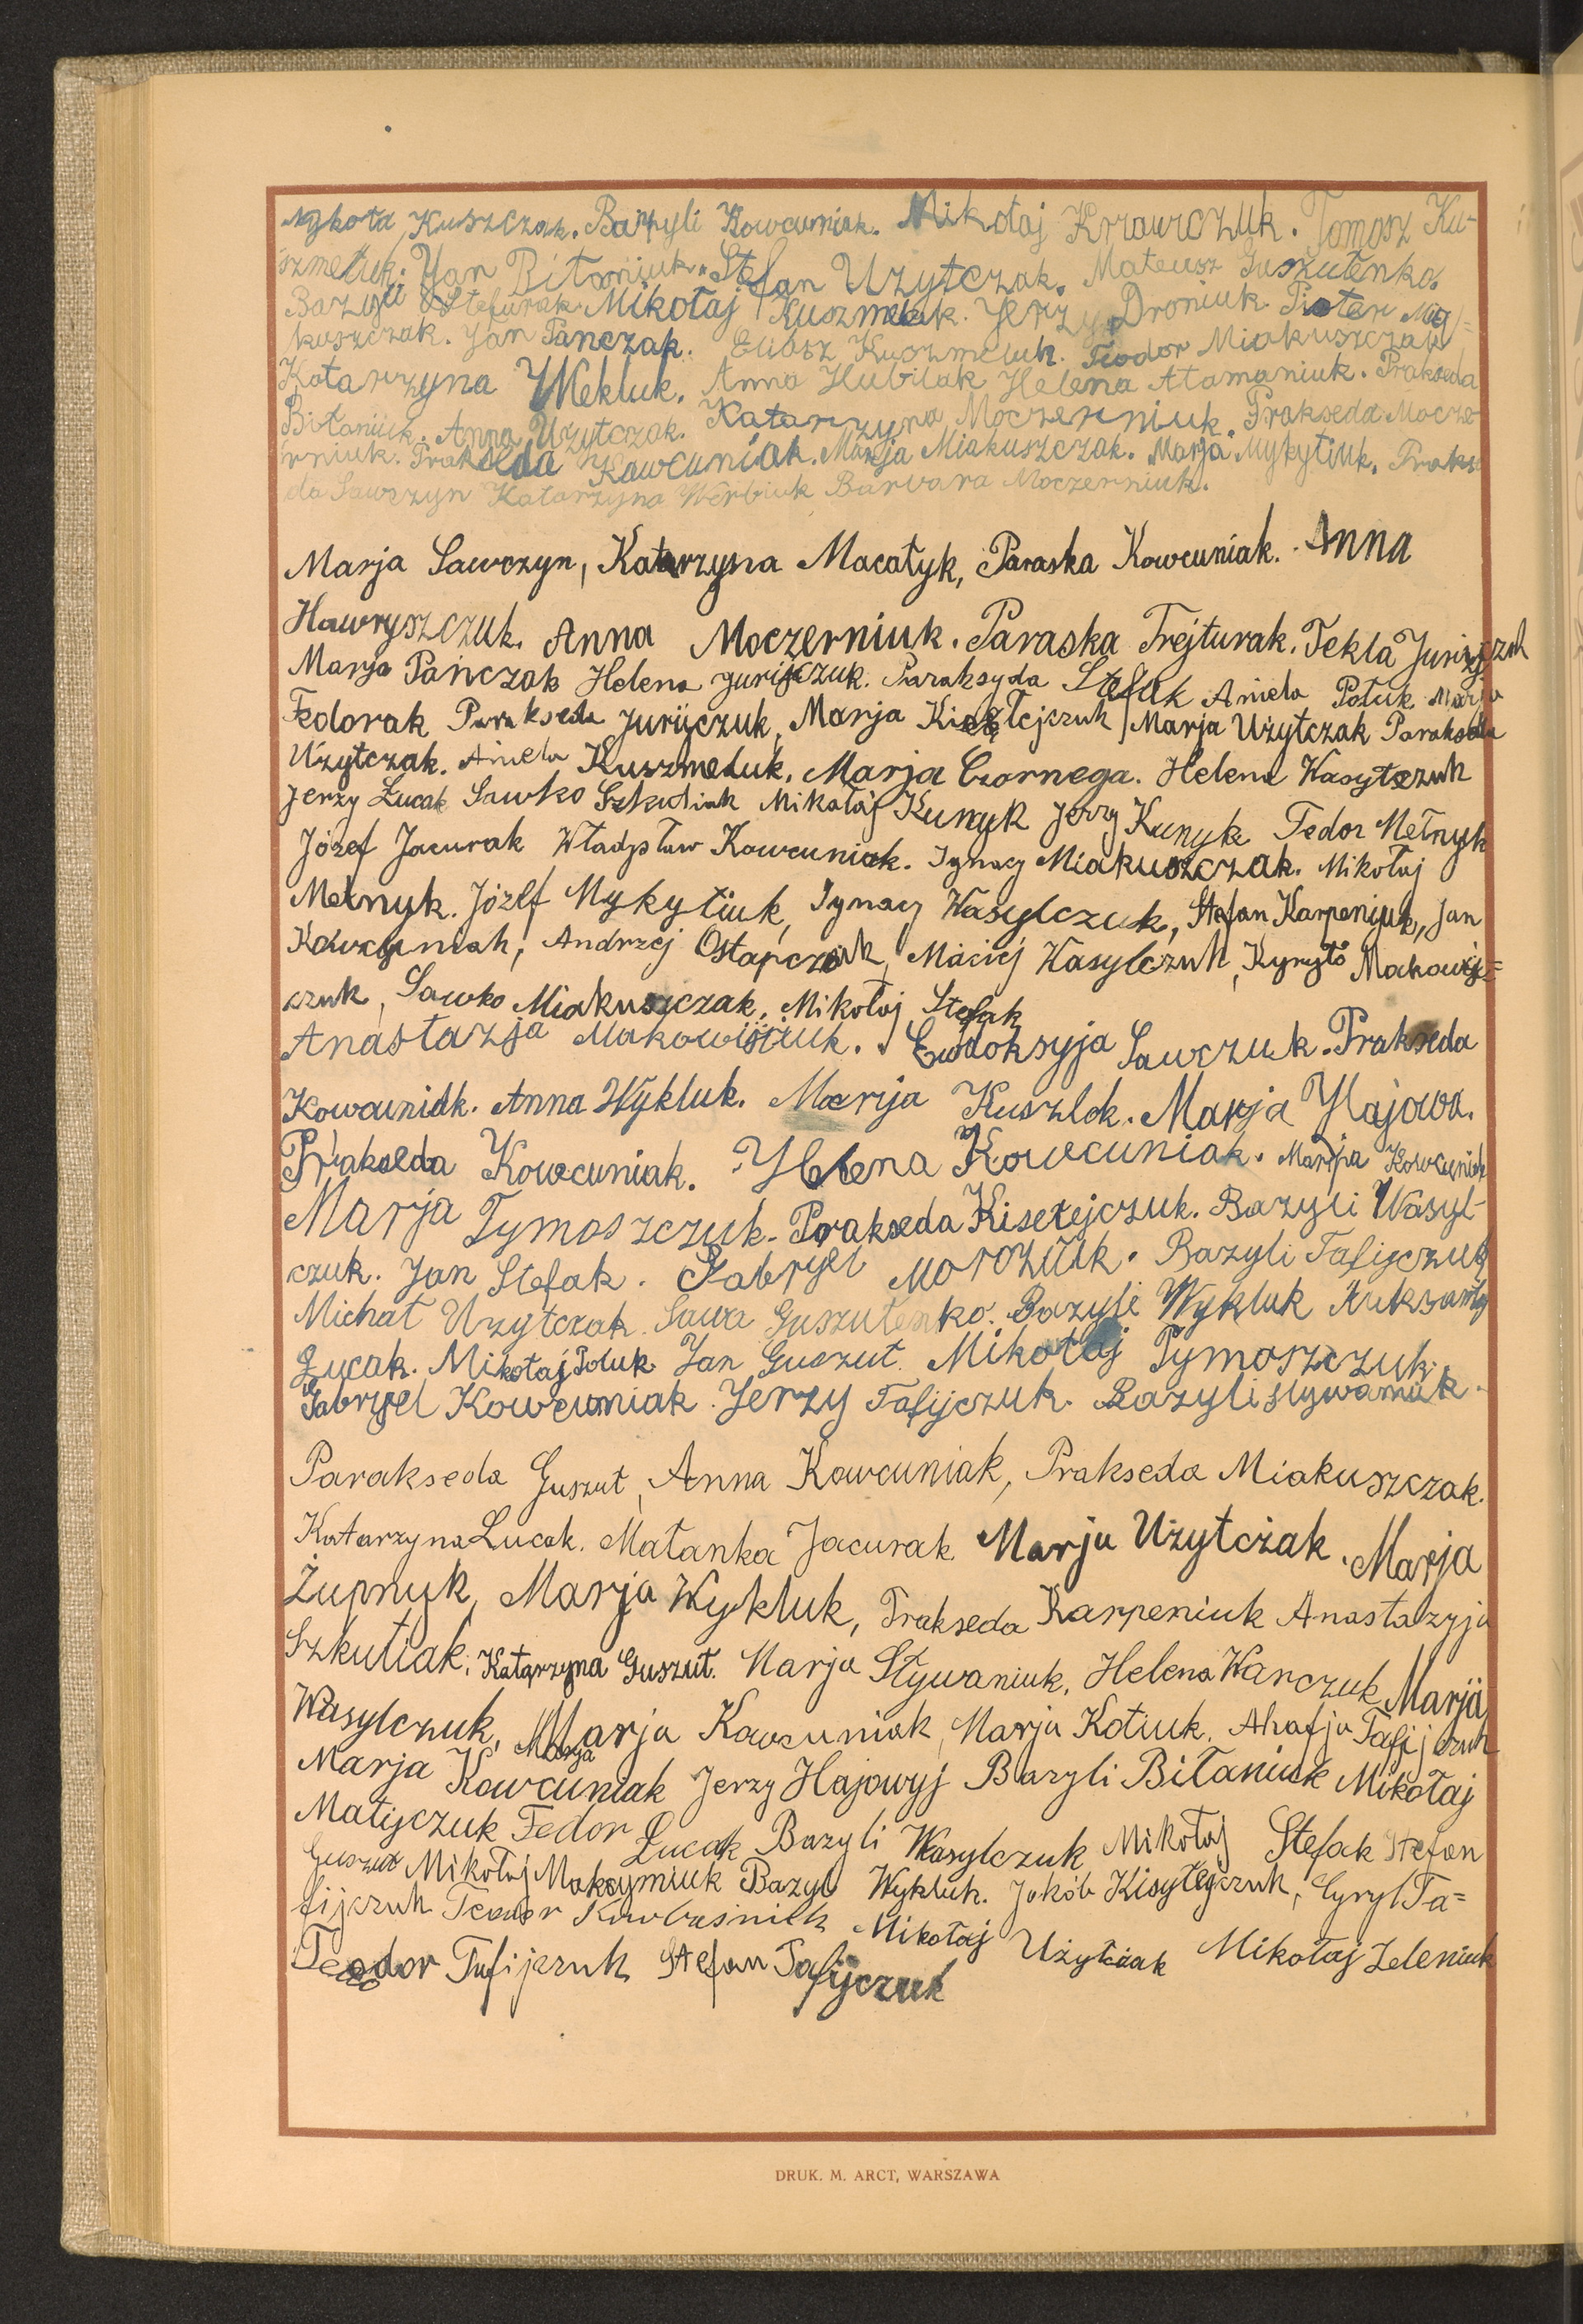 Mykoła Kuszczak. Bazyli Kowcuniak. Mikołaj Krawczuk. Tomasz Ku-
szmeluk. Jan Bitaniuk. Stefan Użytczak. Mateusz Guszutenko.
Bazyli Stefurak Mikołaj Kuszmeluk. Jerzy Droniuk. Pioter Mia-
kuszczak. Jan Pańczak. Eliasz Kuszmeluk. Teodor Miakuszczak
Katarzyna Wekluk. Anna Hubilak Helena Atamaniuk. Prakseda
Bitaniuk. Anna Użytczak. Katarzyna Moczerniuk. Prakseda Mocze-
rniuk. Prakseda Kowcuniak. Marja Miakuszczak. Marja Mykytiuk. Prakse
da Sawczyn Katarzyna Werbiuk Barbara Moczerniuk.
Marja Sawczyn, Katarzyna Macatyk, Paraska Kowcuniak. Anna
Hawryszczuk. Anna Moczerniuk. Paraska Trejturak. Tekla Jurijczuk
Marja Pańczak Helena Jurijczuk. Paraksyda Stefak Aniela Połuk Marja
Fedorak Parakseda Jurijczuk, Marja Marja Użytczak Parakseda
Użytczak. Aniela Kuszmeluk. Marja Czornega. Helena Wasylczuk
Jerzy Łucak Sawko Szkutiak Mikołaj Kunyk Jerzy Kunyk Fedor Mełnyk
Józef Jacurak Władysław Kowcuniak. Ignacy Miakuszczak. Mikołaj
Mełnyk. Józef Mykytiuk, Ignacy Wasylczuk, Stefan Karpeniuk, Jan
Kowcuniak, Andrzej Ostapczuk, Maciej Wasylczuk, Kyryło Makowij=
czuk, Sawko Miakuszczak, Mikołaj Stefak
Anastazja Makowijczuk. Ewdoksyja Sawczuk. Prakseda
Kowcuniak. Anna Wykluk. Marija Kuszlok. Marja Hajowa.
Prakseda Kowcuniak. Helena Kowcuniak. Marja Kowcuniak
Marja Tymoszczuk. Prakseda Kiselejczuk. Bazyli Wasyl-
czuk. Jan Stefak. Gabryel Moroziuk. Bazyli Tafijczuk
Michał Użytczak. Sawa Guszutenko. Bazyli Wykluk
Łucak. Mikołaj Połuk Jan Guszut. Mikołaj Tymoszczuk.
Gabryel Kowcuniak. Jerzy Tafijczuk. Bazyli Sływaniuk.
Parakseda Guszut, Anna Kowcuniak, Prakseda Miakuszczak.
Katarzyna Łucak. Małanka Jacurak. Marja Użytczak. Marja
Żupnyk, Marja Wykluk, Prakseda Karpeniuk Anastazyja
Szkutiak, Katarzyna Guszut. Marja Sływaniuk, Helena Wanczuk Marja
Wasylczuk, Marja Kowcuniak, Marja Kotiuk. Ahafja Tafijczuk
Marja Marja Kowcuniak Jerzy Hajowyj Bazyli Biłaniuk Mikołaj
Matijczuk Fedor Łucak Bazyli Wasylczuk Mikołaj Stefak Stefan
Guszut Mikołaj Maksymiuk Bazyli Wykluk. Jakób Kisylejczuk, Cyryl Ta=
fijczuk Teodor Mikołaj Użytczak Mikołaj Zeleniuk
Teodor Tafijczuk Stefan Tafijczuk
DRUK. M. ARCT, WARSZAWA